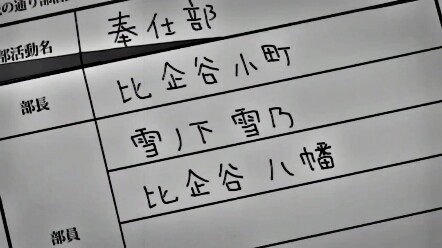 の通り部活
部活動名 奉仕部
部長 比企谷 小町
雪ノ下 雪乃
比企谷 八幡
部員